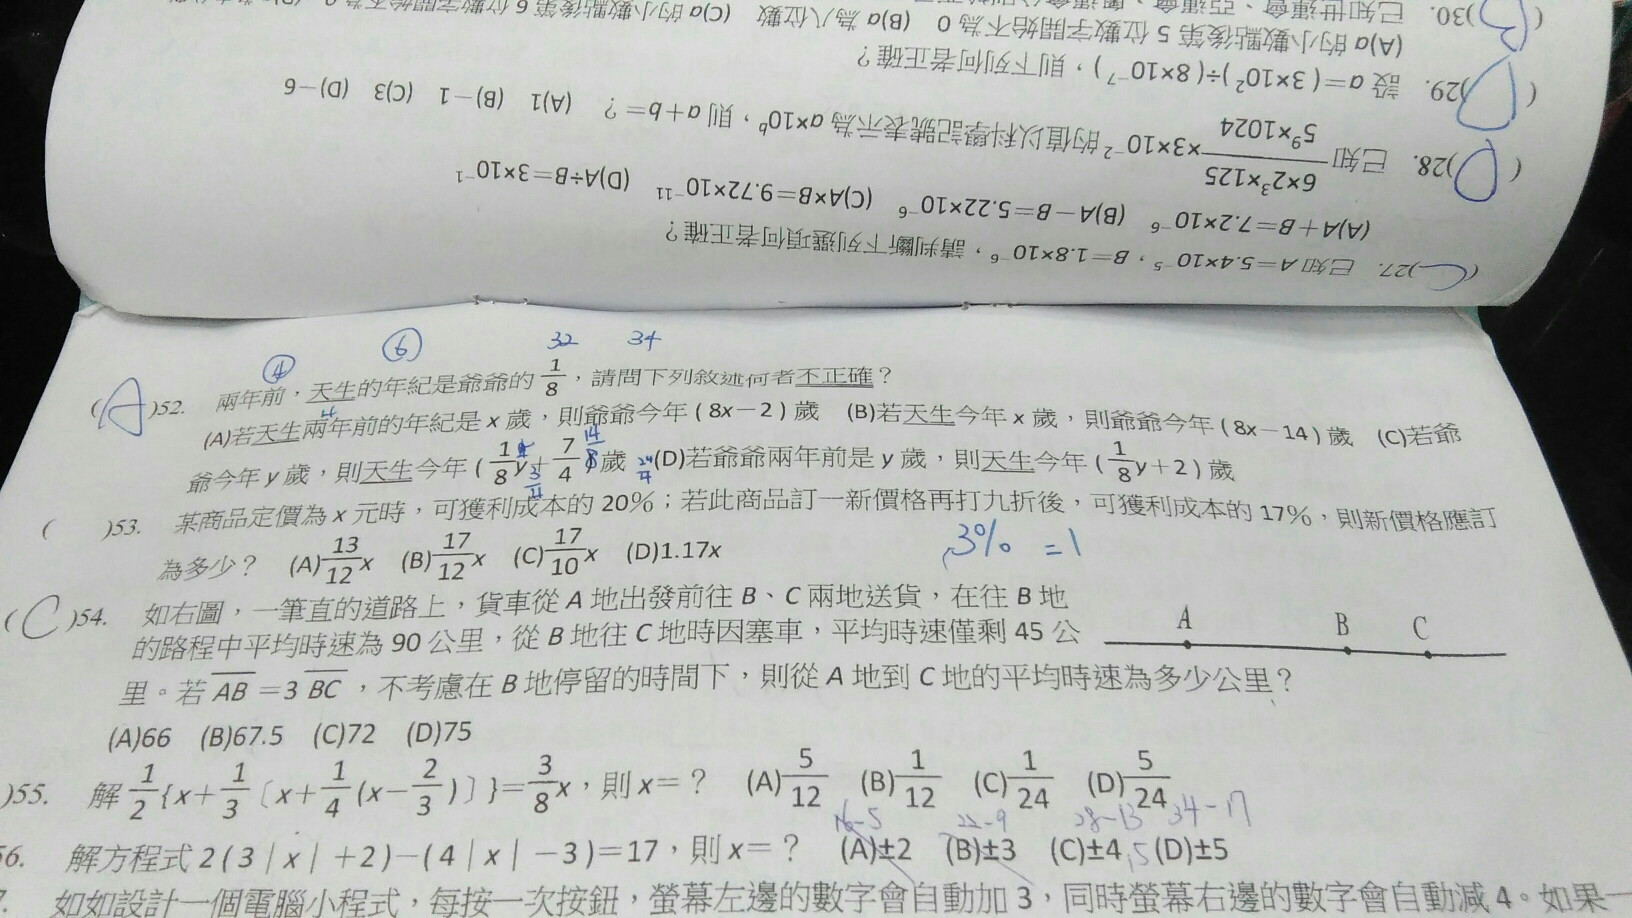 (C)27. 已知 A=5.4×10⁻⁵,B=1.8×10⁻⁶,請判斷下列選項何者正確?
(A)A+B=7.2×10⁻⁶ (B)A-B=5.22×10⁻⁶ (C)A×B=9.72×10⁻¹¹ (D)A÷B=3×10⁻¹
( )28. 已知 (6×2³×125)/(5⁹×1024)×3×10⁻²的值以科學記號表示為 a×10ᵇ,則 a+b=? (A)1 (B)-1 (C)3 (D)-6
( )29. 設 a=(3×10²)÷(8×10⁻⁷),則下列何者正確?
(A)a 的小數點後第 5 位數字開始不為 0 (B)a 為八位數 (C)a 的小數點後第 6 位數字開始不為 0
( )30. 已知世運會、亞運會、
④ ⑥ 32 34
(A)52. 兩年前,天生的年紀是爺爺的 1/8,請問下列敘述何者不正確?
(A)若天生兩年前的年紀是 x 歲,則爺爺今年(8x-2)歲 (B)若天生今年 x 歲,則爺爺今年(8x-14)歲 (C)若爺
爺今年 y 歲,則天生今年(1/8 y+7/4)歲 (D)若爺爺兩年前是 y 歲,則天生今年(1/8 y+2)歲
( )53. 某商品定價為 x 元時,可獲利成本的 20%;若此商品訂一新價格再打九折後,可獲利成本的 17%,則新價格應訂
為多少? (A)13/12 x (B)17/12 x (C)17/10 x (D)1.17x 3% =1
(C)54. 如右圖,一筆直的道路上,貨車從 A 地出發前往 B、C 兩地送貨,在往 B 地
的路程中平均時速為 90 公里,從 B 地往 C 地時因塞車,平均時速僅剩 45 公
里。若 A̅B̅=3 B̅C̅,不考慮在 B 地停留的時間下,則從 A 地到 C 地的平均時速為多少公里?
A B C
(A)66 (B)67.5 (C)72 (D)75
)55. 解 1/2{x+1/3〔x+1/4(x-2/3)〕}=3/8 x,則 x=? (A)5/12 (B)1/12 (C)1/24 (D)5/24
16-5 22-9 28-13 34-17
56. 解方程式 2(3|x|+2)-(4|x|-3)=17,則 x=? (A)±2 (B)±3 (C)±4.5 (D)±5
如如設計一個電腦小程式,每按一次按鈕,螢幕左邊的數字會自動加 3,同時螢幕右邊的數字會自動減 4。如果一